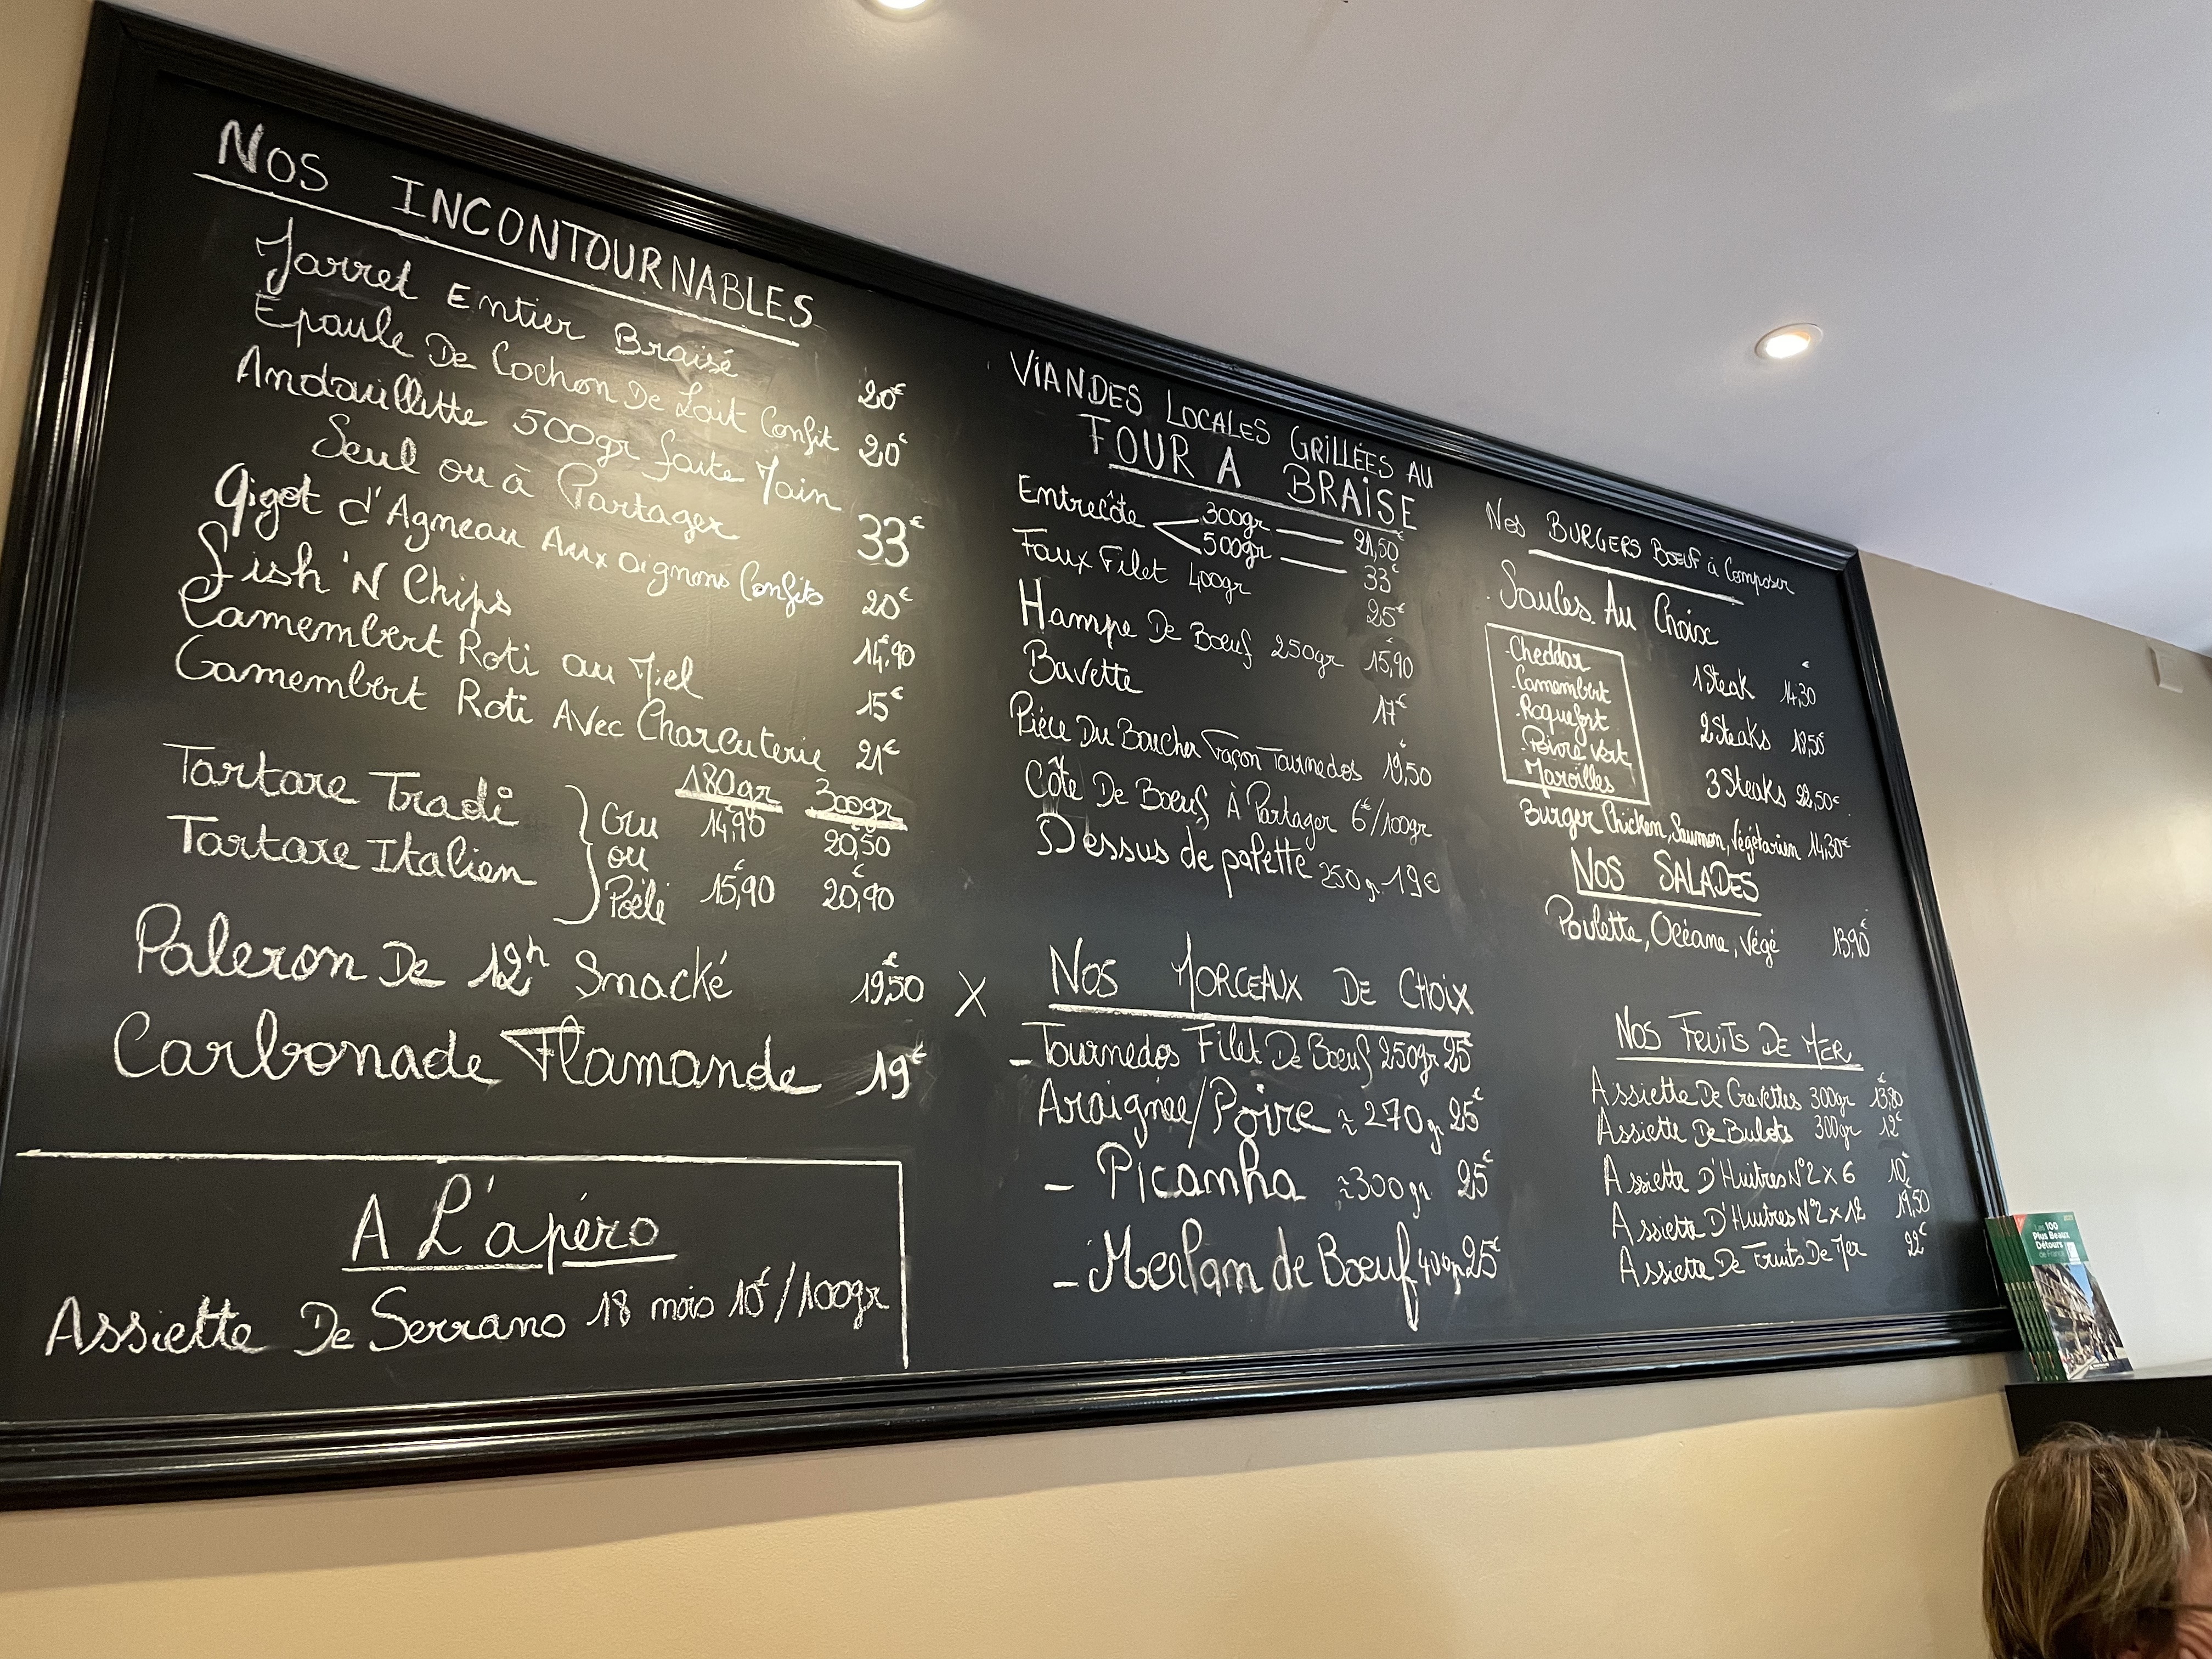 NOS INCONTOURNABLES
Jarret Entier Braisé 20€
Epaule De Cochon De Lait Confit 20€
Andouillette 500gr faite Main
Seul ou à Partager 33€
Gigot d'Agneau Aux oignons Confits 20€
Fish 'N Chips 14,90€
Camembert Roti au Miel 15€
Camembert Roti Avec Charcuterie 21€
180gr 300gr
Tartare Tradi Cru 14,90 20,50
ou
Tartare Italien Poêlé 15,90€ 20,90€
Paleron De 12h Smacké 19,50€ X
Carbonade Flamande 19€
A L'apéro
Assiette De Serrano 18 mois 10€/100gr
VIANDES LOCALES GRILLÉES AU
FOUR A BRAISE
Entrecôte 300gr 21,50€
500gr 33€
Faux Filet 400gr 25€
Hampe De Boeuf 250gr 15,90€
Bavette 17€
Piéce Du Boucher Façon Tournedos 19,50€
Côte De Boeuf À Partager 6€/100gr
Dessus de palette 250g 19€
NOS MORCEAUX DE CHOIX
- Tournedos Filet De Boeuf 250gr 25€
Araignée/Poire ≈ 270gr 25€
- Picanha ≈300gr 25€
- Merlan de Boeuf 400gr 25€
Nos BURGERS BOEUF à Composer
Saules Au Choix
- Cheddar
- Camembert
- Roquefort
- Poivre Vert
Maroilles
1 Steak 14,30€
2 Steaks 18,50€
3 Steaks 22,50€
Burger Chicken, Saumon, Végétarien 14,30€
NOS SALADES
Poulette, Océane, Végé 13,90€
NOS FRUITS DE MER
Assiette De Crevettes 300gr 13,80€
Assiette De Bulots 300gr 12€
Assiette D'Huitres N°2 x 6 10€
Assiette D'Huitres N°2 x 12 19,50€
Assiette De Fruits De Mer 22€
Les 100
Plus Beaux
Détours
de France